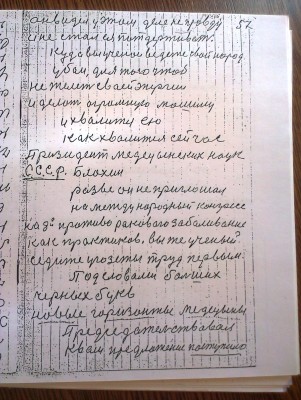 он видел у этом деле неправду 57.
и не стал ея поддерживат.
Куда вы ученые ведете свой народ
убая, для того чтоб
не жалет своей энргии
и делот огромную машину
и хвалится ею
как хвалится сейчас
Призидент медецынских наук
С.С.С.Р. Блохин
разве он не приглошал
на международный конгресс
противо ракового заболивание
как практиков, вы же ученый
седите у газеты труд первым.
Под словами болших
черных букв
новые горизонты медецыны
Председателствавал
Квам предложение поступило